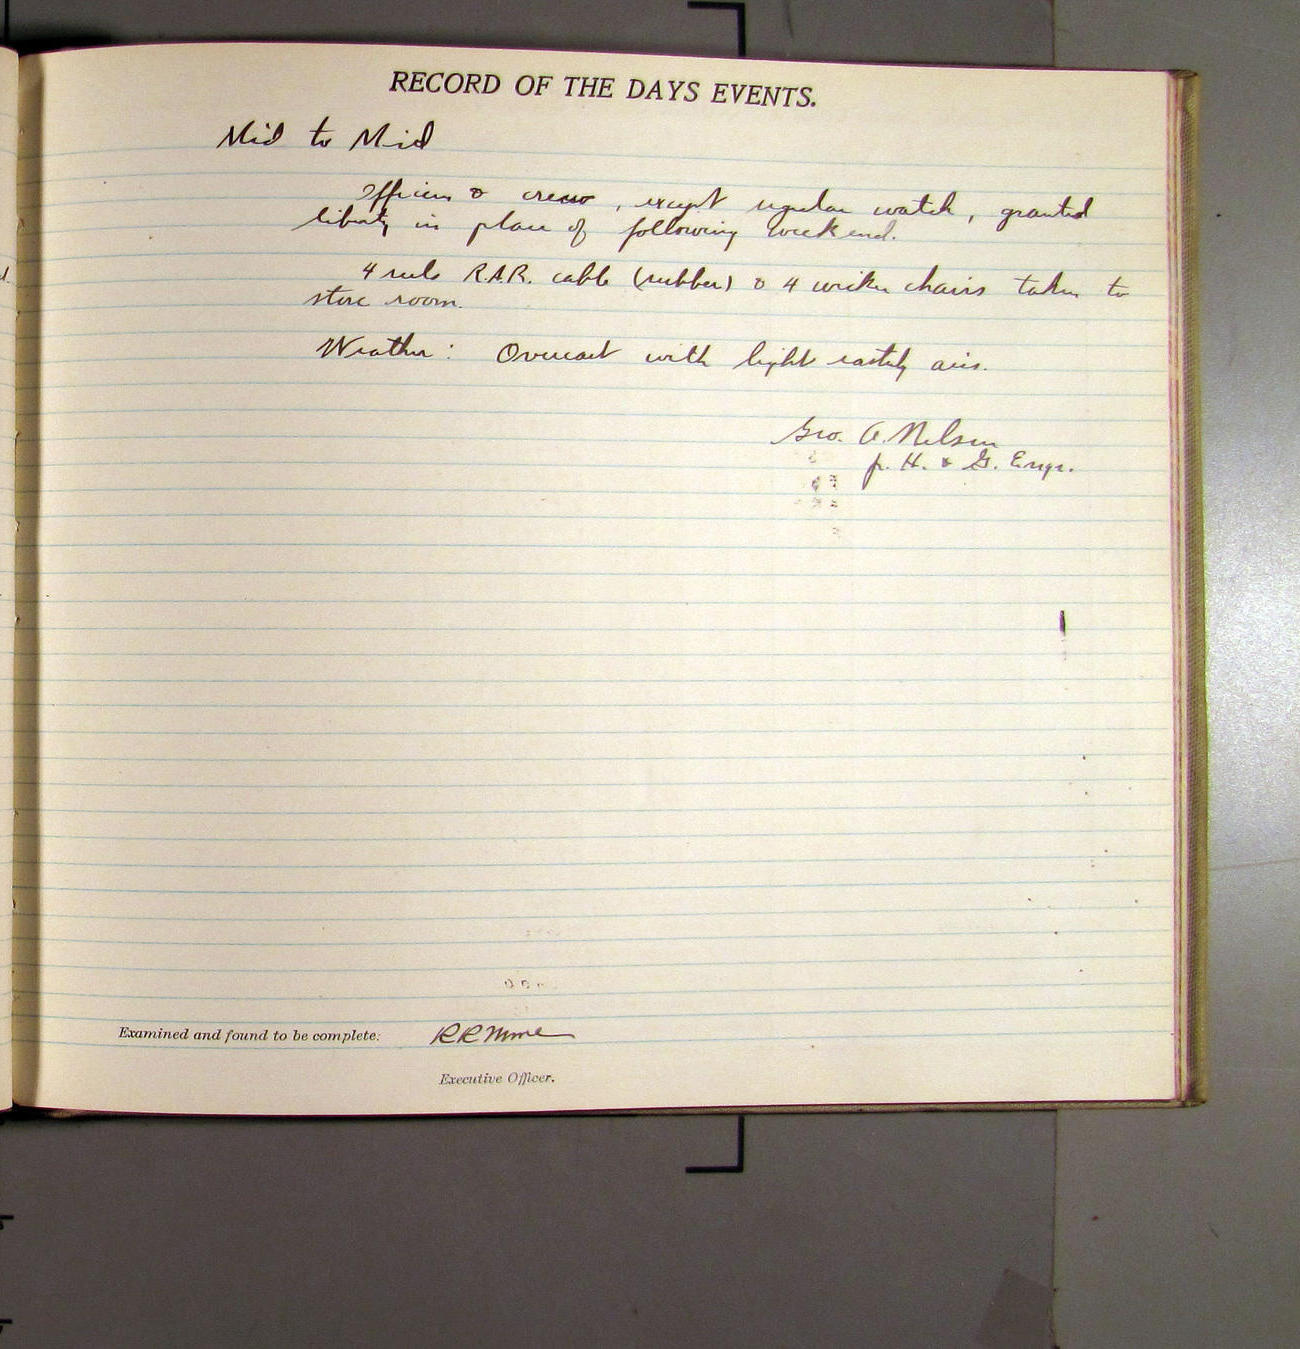 RECORD OF THE DAYS EVENTS.
Mid to Mid
Officers & crew, except regular watch, granted
liberty in place of following weekend.
4 reels R.A.R. cable (rubber) & 4 wicker chairs taken to
store room.
Weather: Overcast with light easterly airs.
Geo. A. Nelson
jr. H. & G. Engr.
Examined and found to be complete:
Executive Officer.